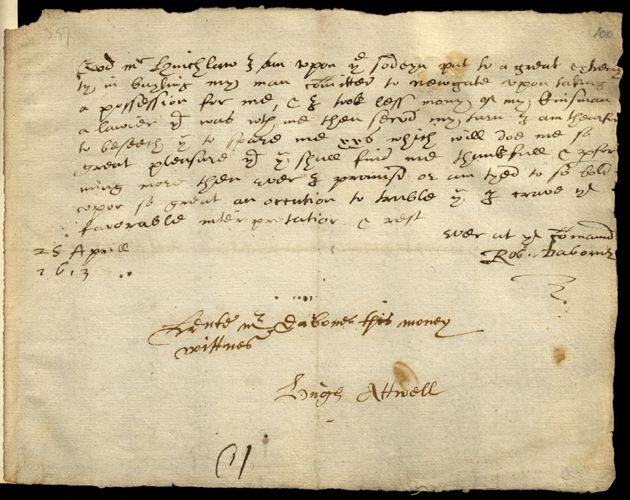 God mr Hinchlaw I am upon ye sodeyn put to a great extremi
ty in bayling my man comitted to newgate upon taking
a possession for me, & I took less mony of my kinsman
a lawier yt was wth me then servd my turn I am thearfor
to beseech yu to spare me xxs which will doe me so
great pleasure yt yu shall find me thankfull & perfor
ming more then ever I promisd or am tyed to so bold
upon so great an occation to truble yu I crave yr
favorable interpretation & rest
25 Aprill
1613
ever at yr comaund
Rob: Daborne
Lente mr Daborne this money
wittnes
Hugh Attwell
(1)
100